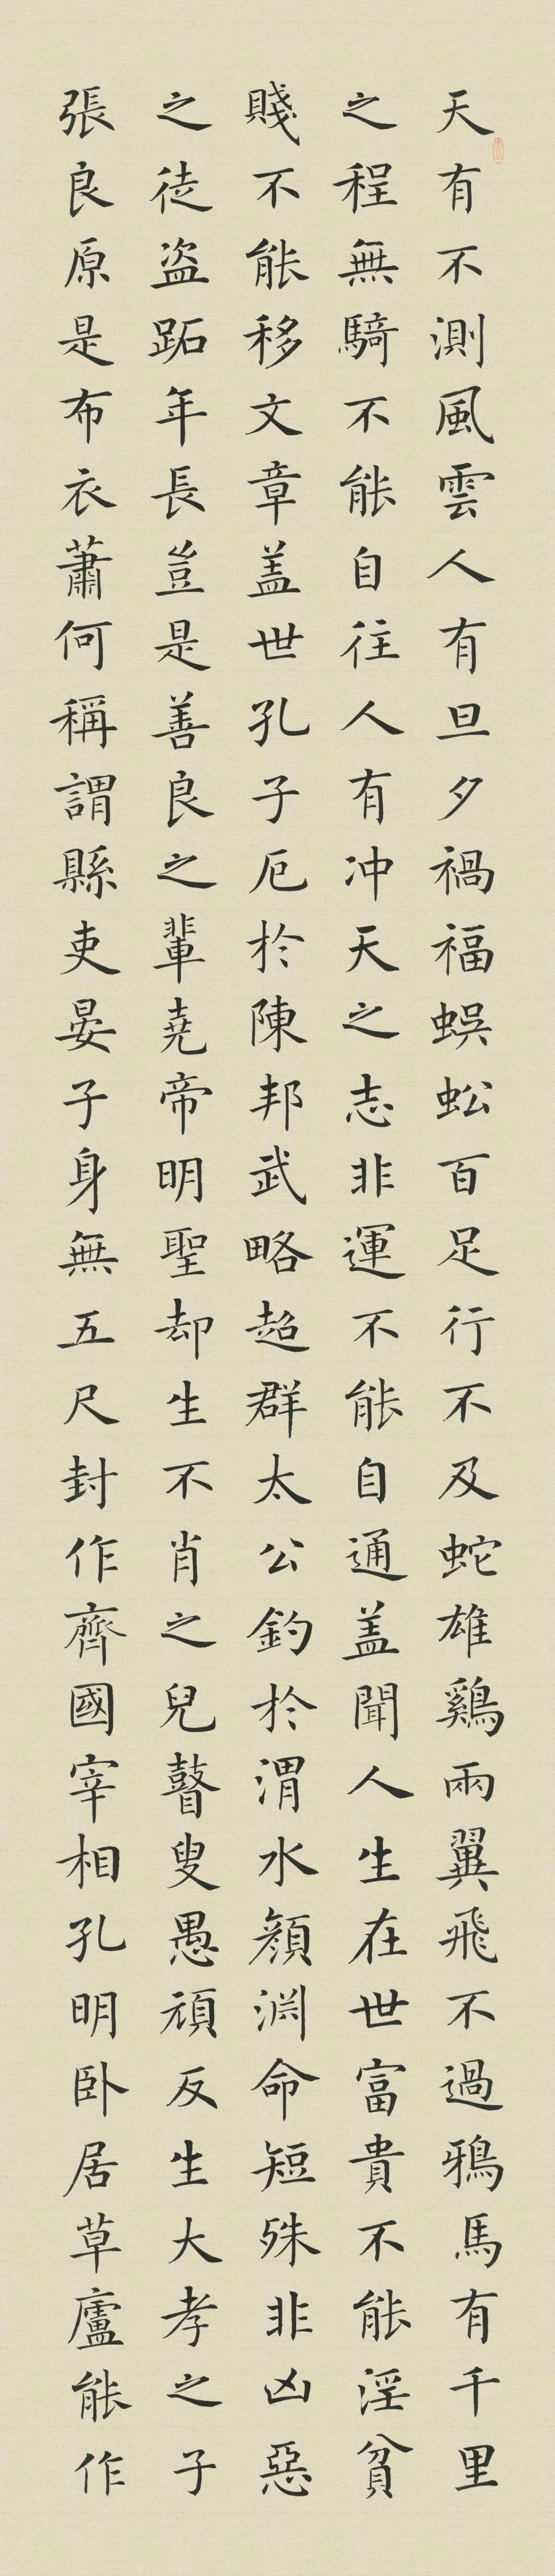 天有不測風雲人有旦夕禍福蜈蚣百足行不及蛇雄鷄兩翼飛不過鴉馬有千里
之程無騎不能自往人有冲天之志非運不能自通盖聞人生在世富貴不能淫貧
賤不能移文章盖世孔子厄於陳邦武略超群太公釣於渭水顏淵命短殊非凶惡
之徒盗跖年長豈是善良之輩堯帝明聖却生不肖之兒瞽叟愚頑反生大孝之子
張良原是布衣蕭何稱謂縣吏晏子身無五尺封作齊國宰相孔明卧居草廬能作